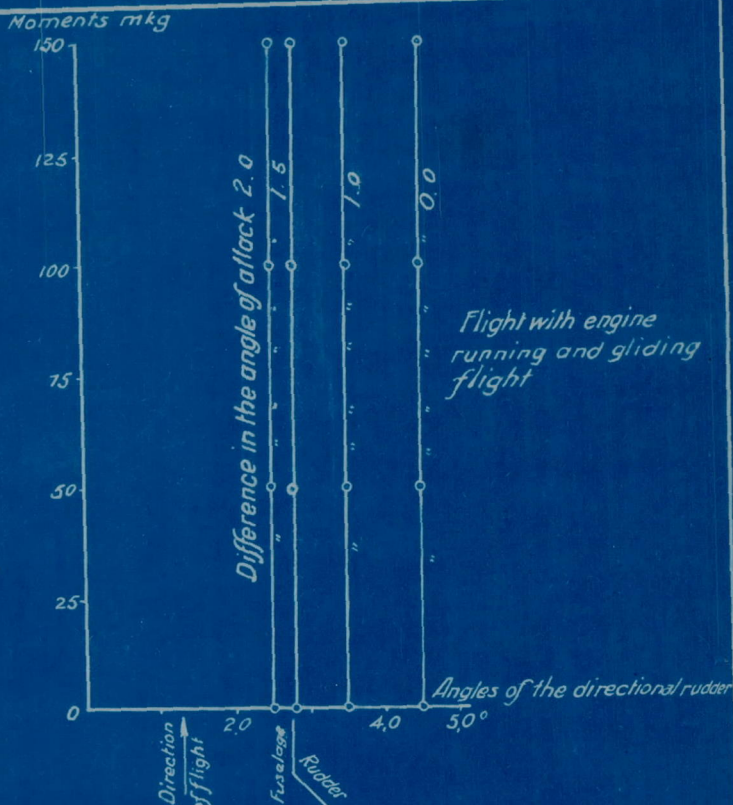 Moments mkg
150
125
100
75
50
25
0
Difference in the angle of attack 2.0
" " " " " " 1.5
" " " " " 1.0
" " " " " 0.0
Flight with engine
running and gliding
flight
Angles of the directional rudder
2.0 4.0 5.0°
Direction
of flight
Fuselage
Rudder